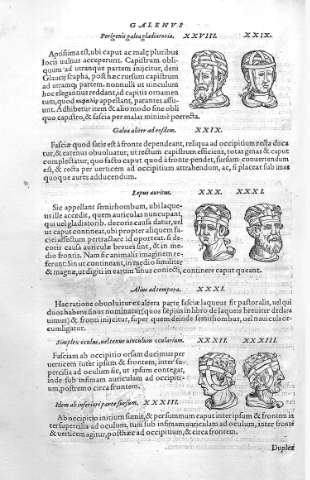 GALENVS
Perigenis galea gladiatoria. XXVIII. XXIX.
Aptissima est, ubi caput ac malę pluribus
locis uulnus acceperunt. Capistrum obli-
quum ad utranque partem inijcitur, dein
Glaucij scapha, post hæc rursum capistrum
ad utranq; partem. nonnulli ut uinculum
hoc elegantius reddant, id capitis ornamen
tum, quod appellant, parantes assu-
unt. Adhibetur item & alio modo sine obli
quo capistro, & fascia per malas minimè porrecta.
Galea aliter ad eosdem. XXIX.
Fasciæ quod satis est à fronte dependeat, reliqua ad occipitium recta duca
tur, & eatenus obuoluatur, ut rectum capistrum efficiens, totas genas & caput
complectatur, quo facto caput quod à fronte pendet, sursum conuertendum
est, & recta per uerticem ad occipitium attrahendum, ac, si placeat sub imas
quoque aures adducendum.
Lepus auritus. XXX. XXXI.
Sic appellant semirhombum, ubi laque-
us ille accedit, quem auriculas nuncupant,
qui uel gladiatorib. decoris causa datur, uel
ut caput contineat, ubi propter aliquem fa-
ciei affectum pertractare id oporteat. si de-
coris causa auriculæ breues sint, & in me-
dio frontis. Nam sic animalis imaginem re-
ferunt: Sin ut contineant, in medio similiter
& magnæ, ut digiti in earum sinus coniecti, continere caput queant.
Alius ad tempora. XXXI.
Hac ratione obuoluitur: ex altera parte fasciæ laqueus fit pastoralis, uel qui
duos habet sinus nominatur (quos septimo libro de laqueis breuiter declara
uimus) & fronti inijcitur, super quem deinde semirhombum, uel nauicula cir-
cumligatur.
Simplex oculus, uel tenue uinculum ocularium. XXXII. XXXIII.
Fasciam ab occipitio orsam ducimus per
uerticem inter ipsum & frontem, inter su-
percilia ad oculum sic, ut ipsum contegat,
inde sub infimam auriculam ad occipiti-
um, postremo circa frontem.
Idem ab inferiori parte sursum. XXXIII.
Ab occipitio initium sumit, & per summum caput inter ipsum & frontem in
ter supercilia ad oculum, tum sub infimam auriculam ad oculum, inter frontē
& uerticem agitur, post hæc ad occipitium, & circa frontem.
Duplex